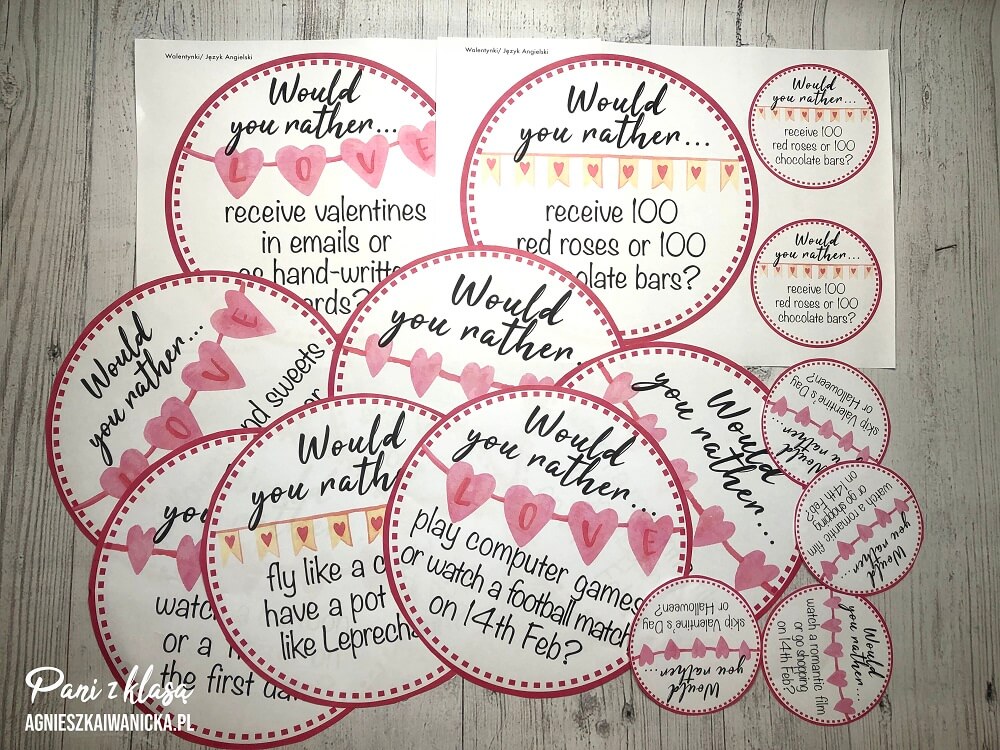 Walentynki/ Język Angielski
Would
you rather...
LOVE
receive valentines
in emails or
hand-writt
Walentynki/ Język Angielski
Would
you rather...
receive 100
red roses or 100
colate bars?
Would
you rather...
receive 100
red roses or 100
chocolate bars?
Would
you rather...
receive 100
red roses or 100
chocolate bars?
Would
you rather...
LOVE
sweets
Would
you rather.
Would
you rather...
you
watc
or a
the first da
Would
you rath
fly like a c
have a pot
like Leprecha
Would
you rather...
LOVE
play computer games
or watch a football match
on 14th Feb?
Would
u rather...
skip Valentine's Day
or Halloween?
Would
you rather...
watch a romantic film
or go shopping
on 14th Feb?
Would
you rather...
skip Valentine's Day
or Halloween?
Would
you rather...
watch a romantic film
or go shopping
on 14th Feb?
Pani z klasą
AGNIESZKAIWANICKA.PL